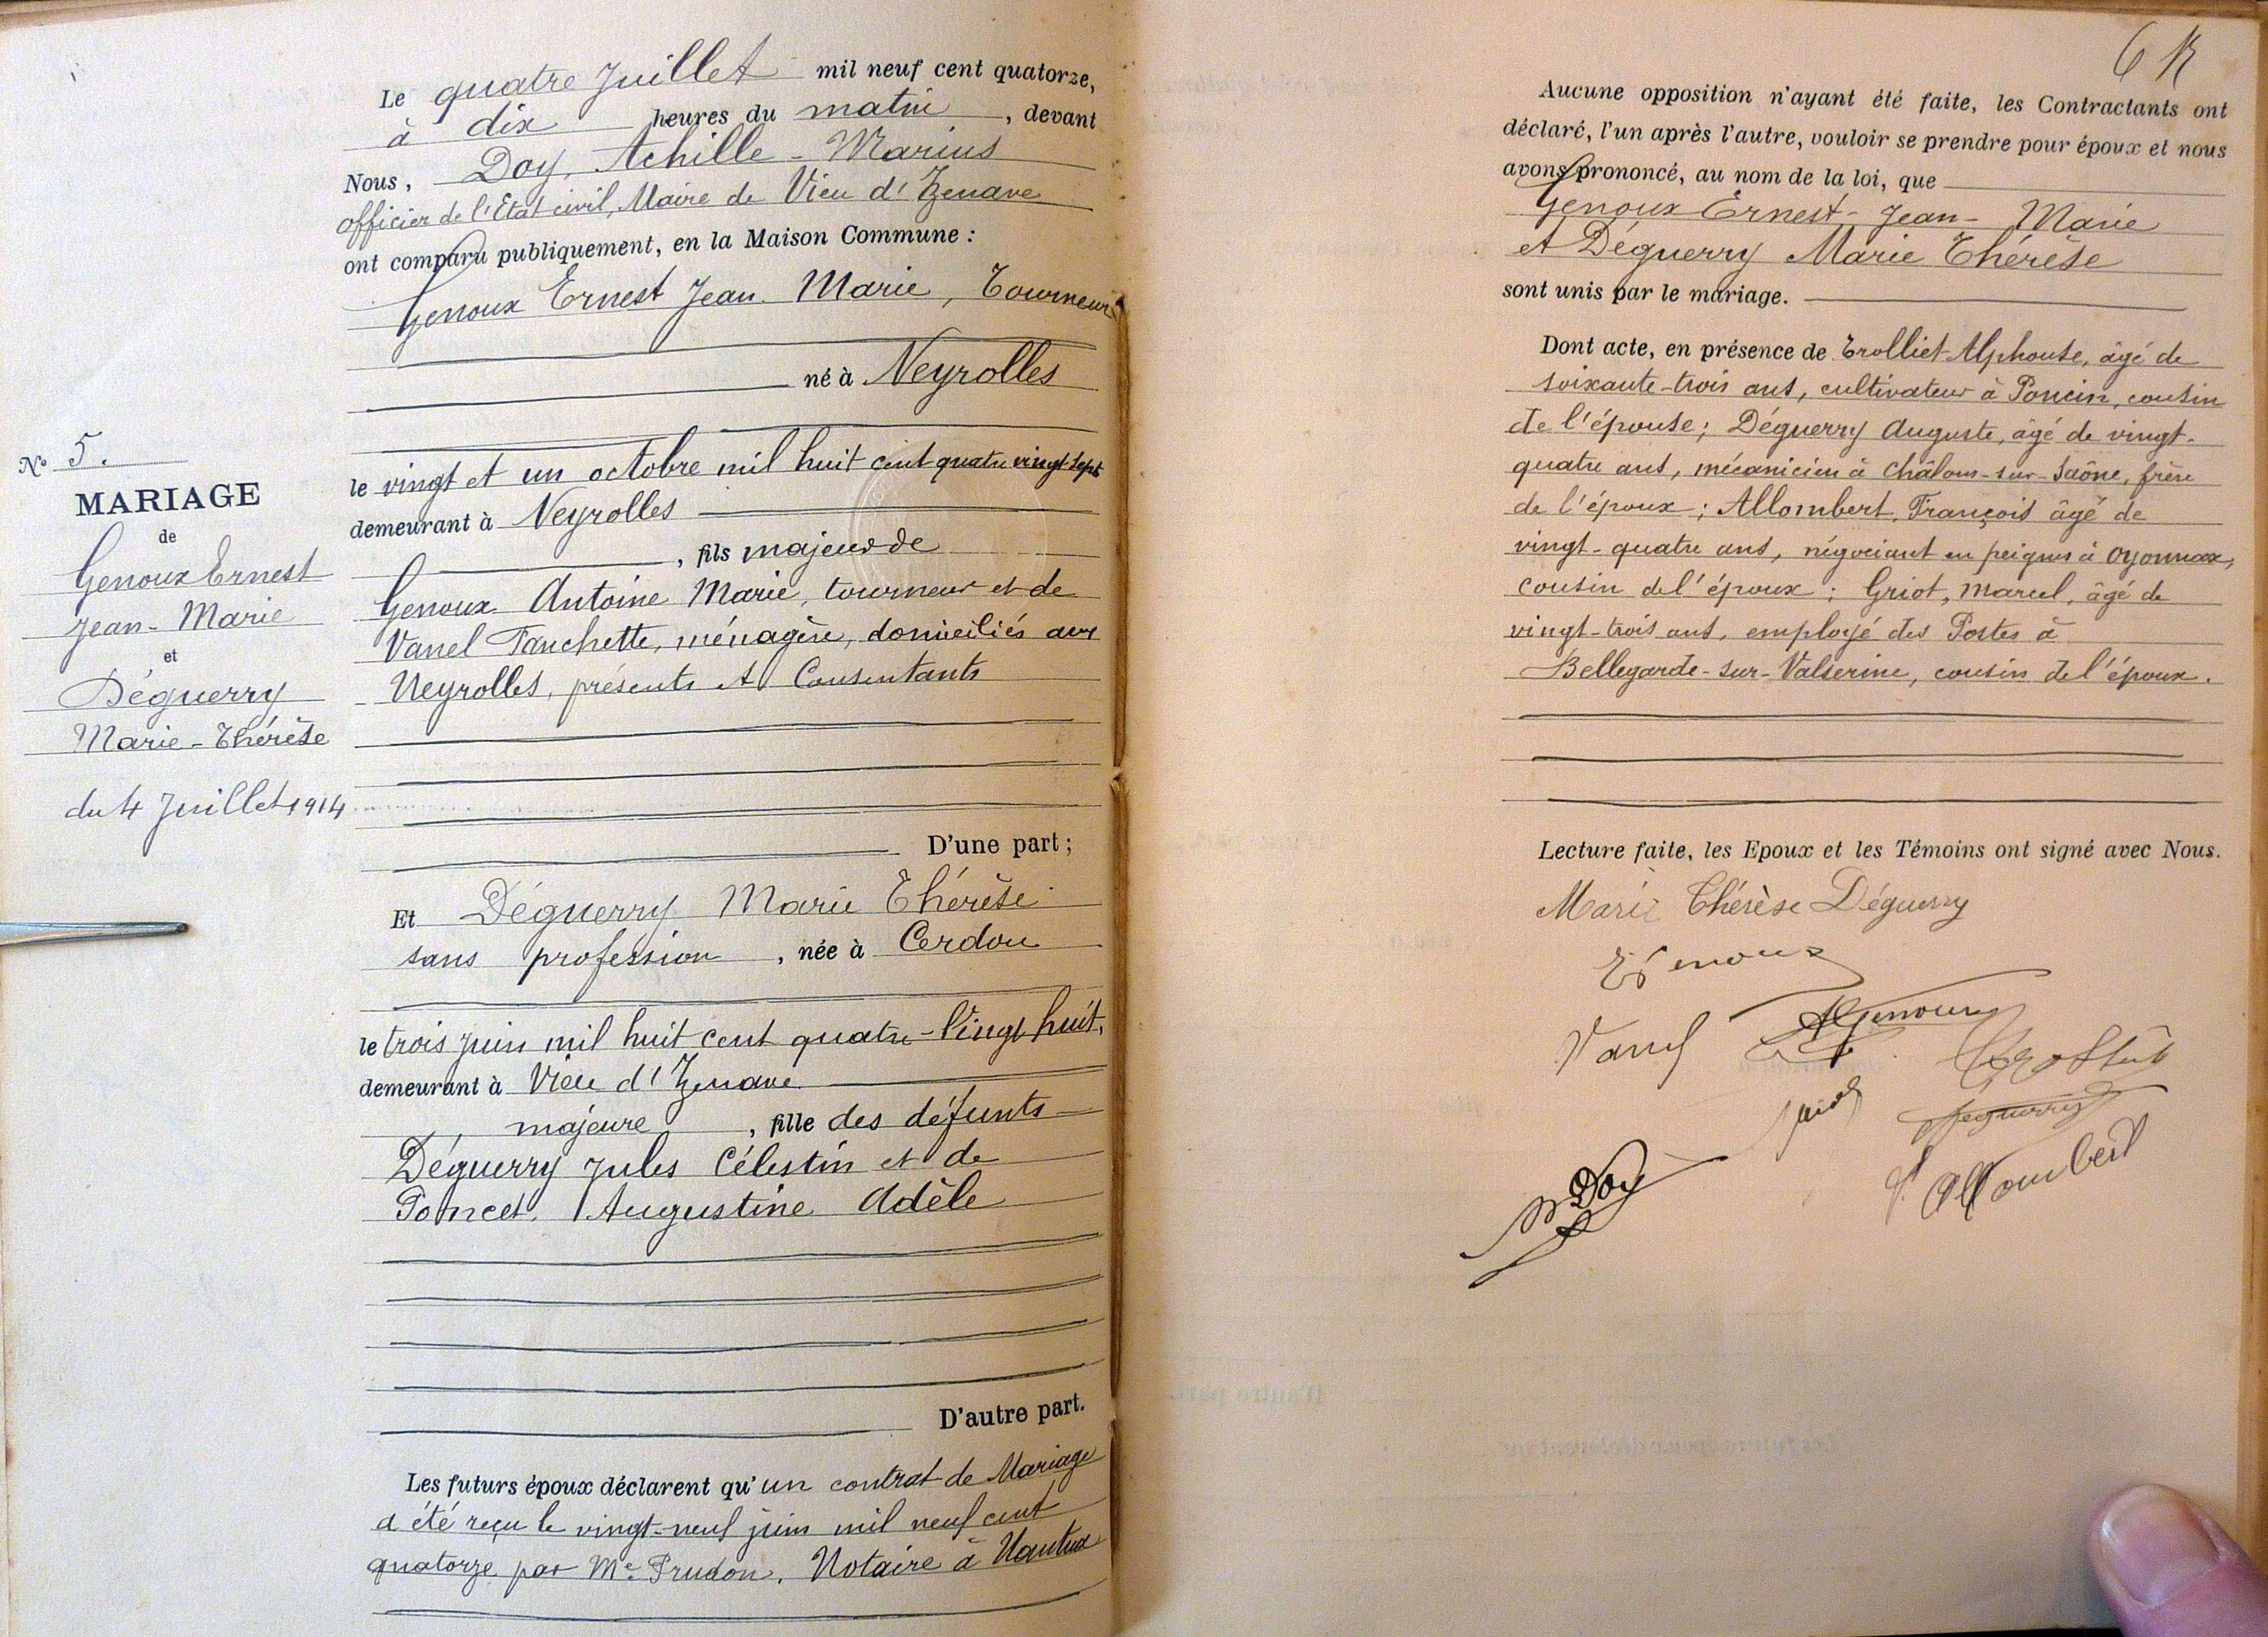 N° 5.
MARIAGE
de
Genoux Ernest
Jean-Marie
et
Déguerry
Marie-Thérèse
du 4 Juillet 1914
Le quatre Juillet mil neuf cent quatorze,
à dix heures du matin, devant
Nous, Doy, Achille-Marius
officier de l'Etat civil, Maire de Vieu d'Izenave
ont comparu publiquement, en la Maison Commune :
Genoux Ernest Jean Marie, Tourneur
né à Neyrolles
le vingt et un octobre mil huit cent quatre vingt-sept
demeurant à Neyrolles
, fils majeur de
Genoux Antoine Marie, tourneur et de
Vanel Fanchette, ménagère, domiciliés aux
Neyrolles, présents et Consentants
D'une part ;
Et Déguerry Marie Thérèse
sans profession, née à Cerdon
le trois juin mil huit cent quatre-vingt huit,
demeurant à Vieu d'Izenave
majeure, fille des défunts
Déguerry Jules Célestin et de
Poncet Augustine Adèle
D'autre part.
Les futurs époux déclarent qu'un contrat de Mariage
a été reçu le vingt-neuf juin mil neuf cent
quatorze par Me Prudon, Notaire à Nantua
Aucune opposition n'ayant été faite, les Contractants ont
déclaré, l'un après l'autre, vouloir se prendre pour époux et nous
avons prononcé, au nom de la loi, que
Genoux Ernest-Jean-Marie
et Déguerry Marie Thérèse
sont unis par le mariage.
Dont acte, en présence de Trolliet Alphonse, âgé de
soixante-trois ans, cultivateur à Poncin, cousin
de l'épouse ; Déguerry Auguste, âgé de vingt-
quatre ans, mécanicien à Châlons-sur-Saône, frère
de l'époux ; Allombert, François âgé de
vingt-quatre ans, négociant en peignes à Oyonnax,
cousin de l'époux ; Griot, Marcel, âgé de
vingt-trois ans, employé des Postes à
Bellegarde-sur-Valserine, cousin de l'époux.
Lecture faite, les Epoux et les Témoins ont signé avec Nous.
Marie Thérèse Déguerry
EGenoux
Vanel AGenoux
Déguerry
Doy
F. Allombert